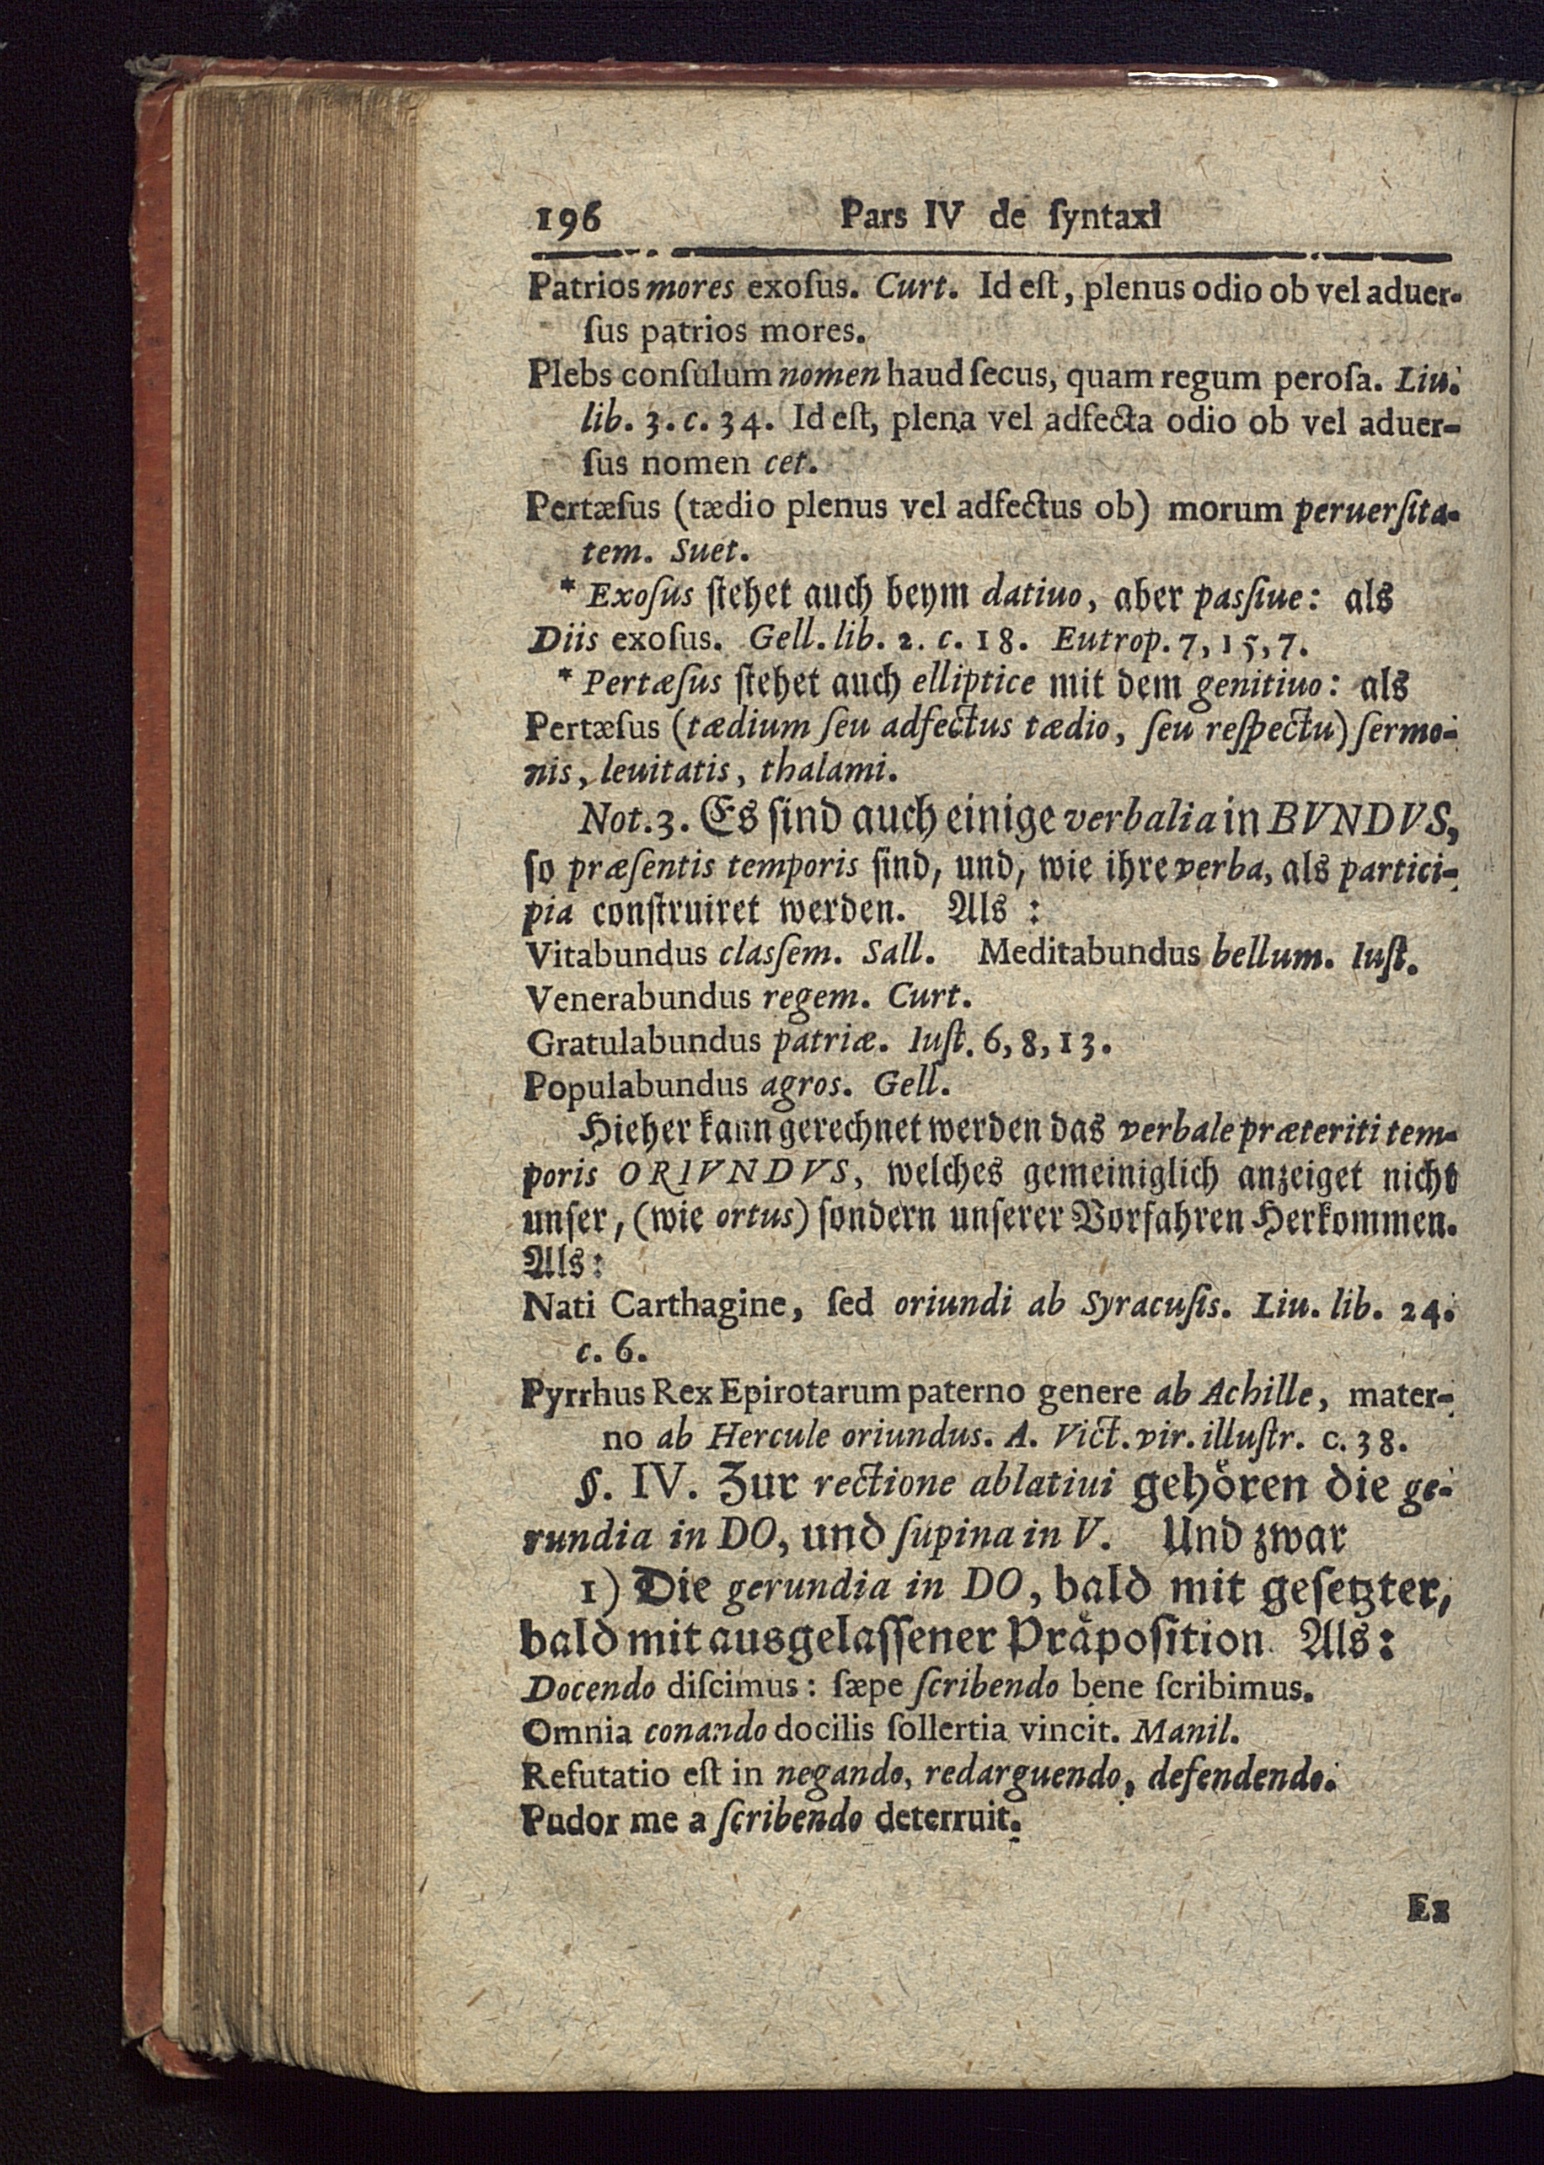 196 Pars IV de ſyntaxi
Patrios mores exoſus. Curt. Id eſt, plenus odio ob vel aduer-
ſus patrios mores.
Plebs conſulum nomen haud ſecus, quam regum peroſa. Liu.
lib. 3. c. 34. Id eſt, plena vel adfecta odio ob vel aduer-
ſus nomen cet.
Pertæſus (tædio plenus vel adfectus ob) morum peruerſita-
tem. Suet.
* Exoſus ſtehet auch beym datiuo, aber paſſiue: als
Diis exoſus. Gell. lib. 2. c. 18. Eutrop. 7, 15, 7.
* Pertæſus ſtehet auch elliptice mit dem genitiuo: als
Pertæſus (tædium ſeu adfectus tædio, ſeu reſpectu) ſermo-
nis, leuitatis, thalami.
Not. 3. Es ſind auch einige verbalia in BVNDVS,
ſo præſentis temporis ſind, und, wie ihre verba, als partici-
pia conſtruiret werden. Als:
Vitabundus claſſem. Sall. Meditabundus bellum. Iuſt.
Venerabundus regem. Curt.
Gratulabundus patriæ. Iuſt. 6, 8, 13.
Populabundus agros. Gell.
Hieher kann gerechnet werden das verbale præteriti tem-
poris ORIVNDVS, welches gemeiniglich anzeiget nicht
unſer, (wie ortus) ſondern unſerer Vorfahren Herkommen.
Als:
Nati Carthagine, ſed oriundi ab Syracuſis. Liu. lib. 24.
c. 6.
Pyrrhus Rex Epirotarum paterno genere ab Achille, mater-
no ab Hercule oriundus. A. Vict. vir. illuſtr. c. 38.
§. IV. Zur rectione ablatiui gehören die ge-
rundia in DO, und ſupina in V. Und zwar
1) Die gerundia in DO, bald mit geſetzter,
bald mit ausgelaſſener Präpoſition. Als:
Docendo diſcimus: ſæpe ſcribendo bene ſcribimus.
Omnia conando docilis ſollertia vincit. Manil.
Refutatio eſt in negando, redarguendo, defendendo.
Pudor me a ſcribendo deterruit.
Ex